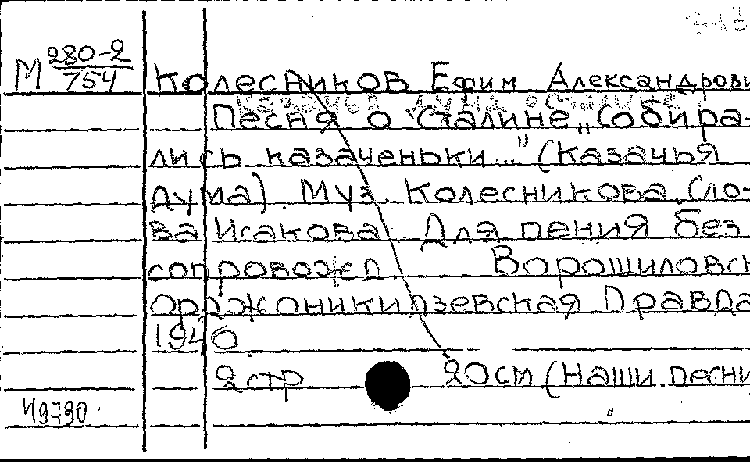 М 280-2/754
Колесников Ефим Александрови
Песня о Сталине „Собира-
лись казаченьки..." (Казачья
дума). Муз. Колесникова. Сло-
ва Исакова. Для пения без
сопровожд. Ворошиловск
Орджоникидзевская Правда
1940
2 стр 20 см (Наши песни
49790